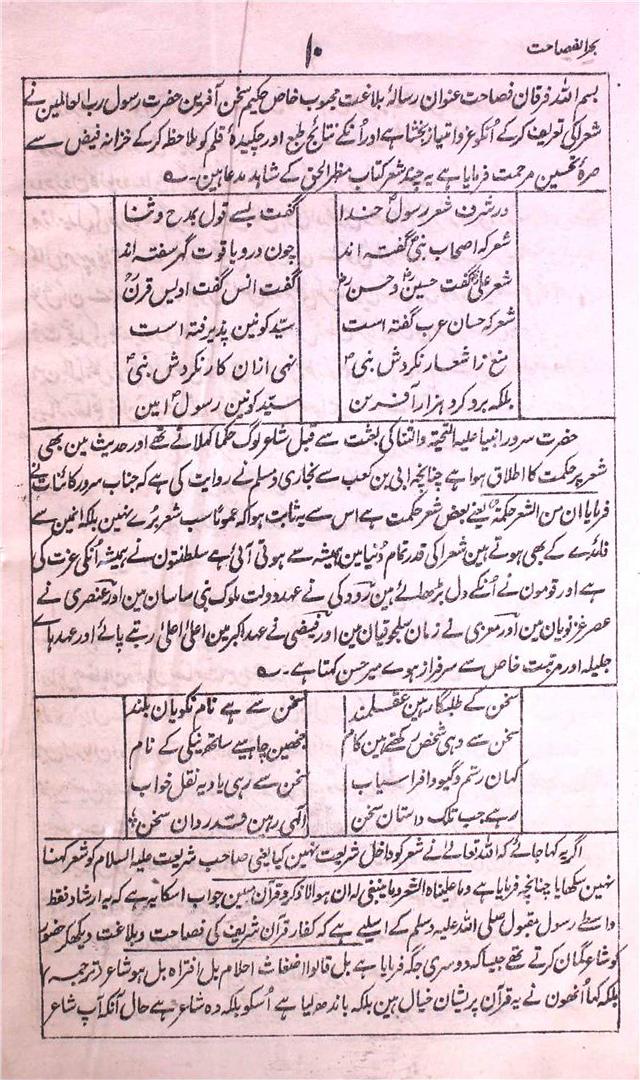 بحر الفصاحت
۱۰
بسم اللہ فرقان فصاحت عنوان رسالۂ بلاغت محبوب خاص حکیم سخن آفرین حضرت رسول رب العالمین نے
شعرا کی تعریف کرکے اُنکو عز و امتیاز بخشا ہے اور اُنکے نتائج طبع اور چکیدۂ قلم کو ملاحظہ کرکے خزانہ فیض سے
صرۂ تحسین مرحمت فرمایا ہے یہ چند شعر کتاب مظہر الحق کے شاہد مدعا ہین۔
در شرف شعر رسول خدا گفت بسے قول بمدح و ثنا
شعر کہ اصحاب نبی گفتہ اند چون در و یاقوت گہر سفتہ اند
شعر علی گفت حسین و حسن گفت انس گفت اویس قرن
شعر کہ حسان عرب گفتہ است سید کونین پذیرفتہ است
منع ز اشعار نکردش نبی نہی ازان کار نکردش نبی
بلکہ برو کرد ہزار آفرین سید کونین رسول امین
حضرت سرور انبیا علیہ التحیۃ والثنا کی بعثت سے قبل شاعر لوگ حکما کہلاتے تھے اور حدیث مین بھی
شعر پر حکمت کا اطلاق ہوا ہے چنانچہ ابی بن کعب سے بخاری و مسلم نے روایت کی ہے کہ جناب سرور کائنات نے
فرمایا ان من الشعر حکمۃ یعنے بعض شعر حکمت ہے اس سے یہ ثابت ہوا کہ عموماً سب شعر بُرے نہین بلکہ انمین سے
فائدے کے بھی ہوتے ہین شعرا کی قدر تمام دُنیا مین ہمیشہ سے ہوتی آئی ہے سلطنتون نے ہمیشہ اُنکی عزت کی
ہے اور قومون نے اُنکے دل بڑھائے ہین رودکی نے عہد دولت ملوک بنی ساسان مین اور عنصری نے
عصر غزنویان مین اور معزی نے زمان سلجوقیان مین اور فیضی نے عہد اکبر مین اعلیٰ اعلیٰ رتبے پائے اور عہدہاے
جلیلہ اور مرتبت خاص سے سرفراز ہوے میر حسن کہتا ہے۔
سخن کے طلبگار ہین عقلمند سخن سے ہے نام نکویان بلند
سخن سے وہی شخص رکھتے ہین کام جنھین چاہیے ساتھ نیکی کے نام
کہان رستم و گیو و افراسیاب سخن سے رہی یاد یہ نقل خواب
رہے جب تلک داستان سخن الٰہی رہین قدردان سخن
اگر یہ کہا جائے کہ اللہ تعالے نے شعر کو داخل شریعت نہین کیا یعنی صاحب شریعت علیہ السلام کو شعر کہنا
نہین سکھایا چنانچہ فرمایا ہے وما علمناہ الشعر وما ینبغی لہ ان ہو الا ذکر وقرآن مبین جواب اسکا یہ ہے کہ یہ ارشاد فقط
واسطے رسول مقبول صلی اللہ علیہ وسلم کے اسلیے ہے کہ کفار قرآن شریف کی فصاحت و بلاغت دیکھکر حضور
کو شاعر گمان کرتے تھے جیسا کہ دوسری جگہ فرمایا ہے بل قالوا اضغاث احلام بل افتراہ بل ہو شاعر (ترجمہ)
بلکہ کہا اُنھون نے یہ قرآن پریشان خیال ہین بلکہ باندھ لیا ہے اُسکو بلکہ وہ شاعر ہے حال آنکہ آپ شاعر